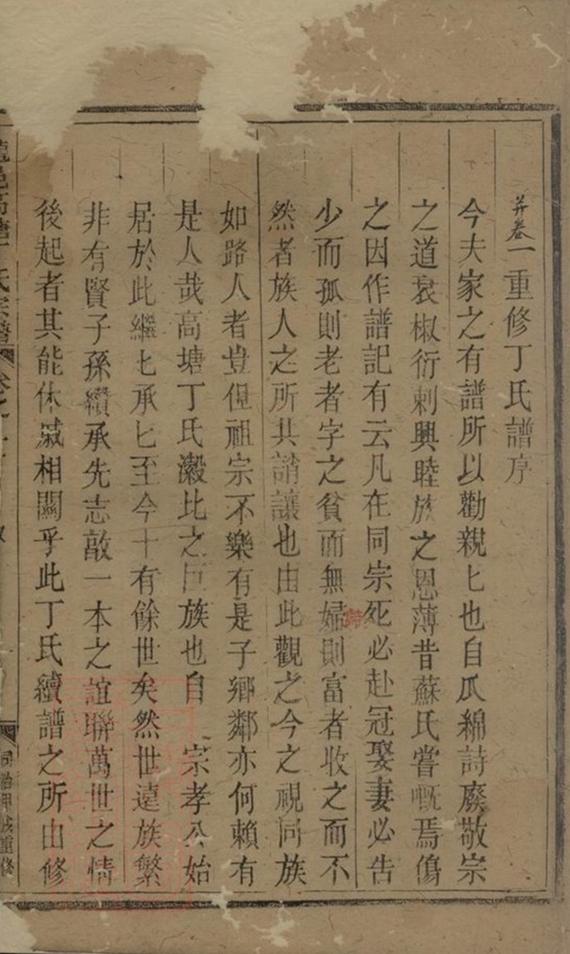 并卷一重修丁氏譜序
今夫家之有譜所以勸親匕也自瓜綿詩廢敬宗
之道衰椒衍刺興睦族之恩薄昔蘇氏嘗慨焉傷
之因作譜記有云凡在同宗死必赴冠娶妻必告
少而孤則老者字之貧而無婦則富者收之而不
然者族人之所共誚讓也由此觀之今之視同族
如路人者豈但祖宗不樂有是子鄉鄰亦何賴有
是人哉高塘丁氏瀫北之巨族也自 宗孝公始
居於此繼匕承匕至今十有餘世矣然世遠族繁
非有賢子孫纘承先志敵一本之誼聯萬世之情
後起者其能休戚相關乎此丁氏續譜之所由修
高塘丁氏宗譜
同治甲戌重修